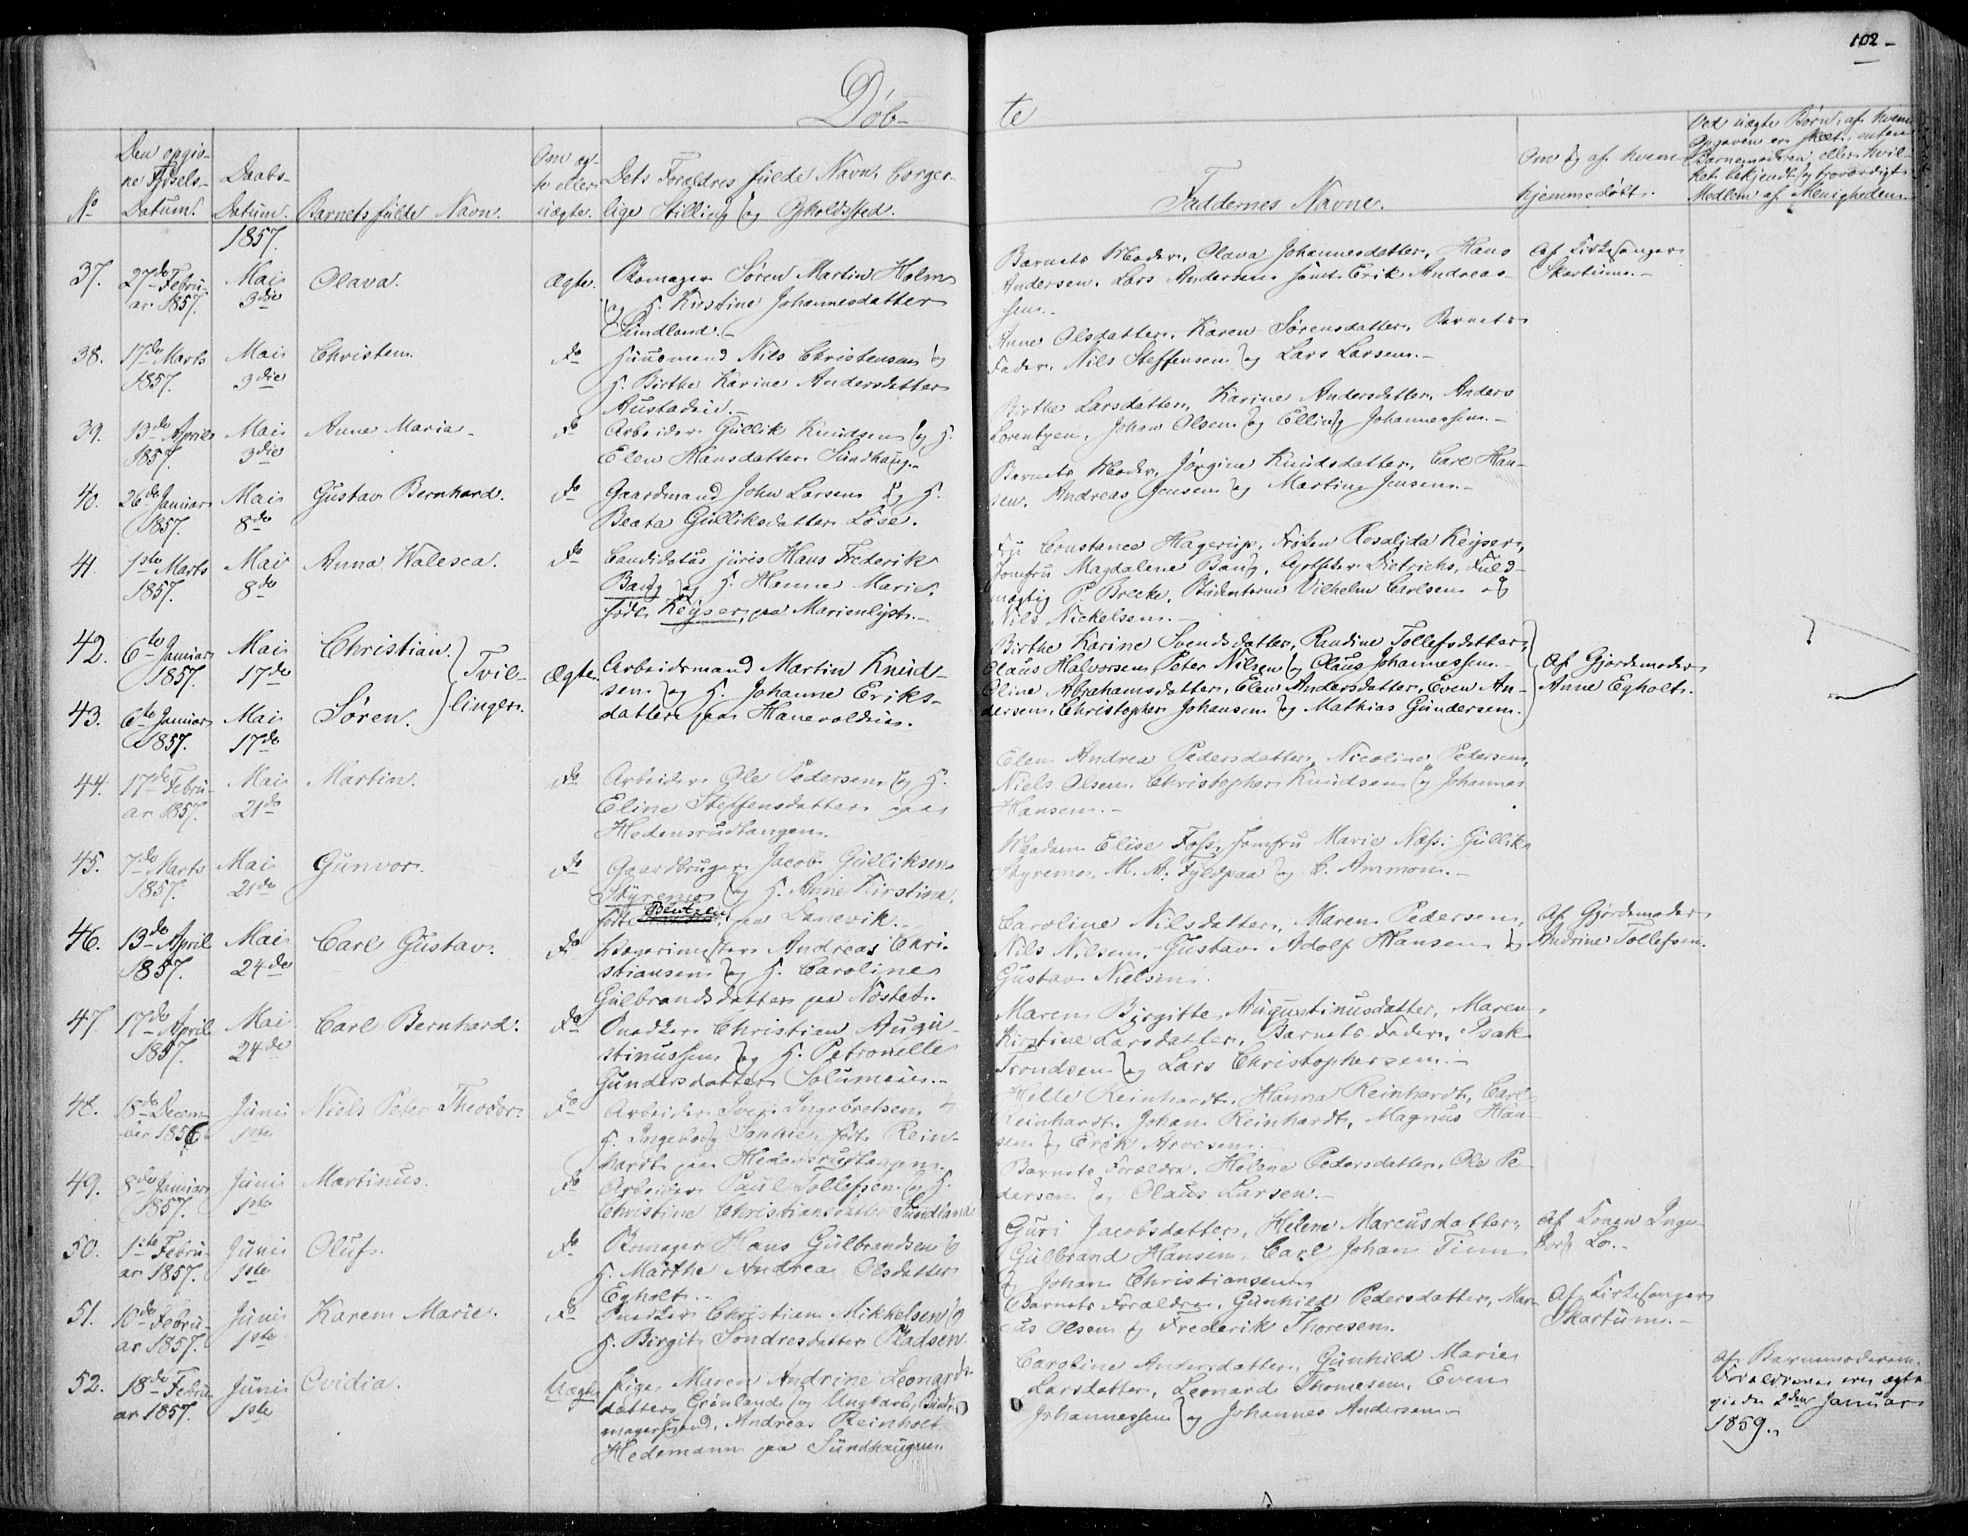 102
Døb-
te
No
Den opgiv-
ne Fødsels-
Datum.
Daabs-
Datum.
Barnets fulde Navn.
Om æg-
te eller
uægte.
Dets Forældres fulde Navn, borger-
lige Stilling og Opholdssted.
Faddernes Navne.
Om og af hvem
hjemmedøbt.
Ved uægte Børn, af hvem
Opgaven er skeet, enten
Barnemoderen, eller hvil-
ket bekjendt og troværdigt
Medlem af Menigheden.
1857.
37. 27de Febru-
ar 1857.
Mai
3die
Olava.
Ægte.
Skomager Søren Martin Holm
og H. Kirstine Johannesdatter
Sundland.
Barnets Moder, Olava Johannesdatter, Hans
Andersen, Lars Andersen samt Erik Andrea-
sen.
Af Kirkesanger
Skartum.
38. 17de Marts
1857.
Mai
3die
Christen.
do
Huusmand Nils Christensen og
H. Birthe Karine Andersdatter
Austadeie.
Anne Olsdatter, Karen Sørensdatter, Barnets
Fader, Nils Steffensen og Lars Larsen.
39. 13de April
1857.
Mai
3die
Anne Maria.
do
Arbeider Gullik Knudsen og H.
Elen Hansdatter Sundhaug.
Birthe Larsdatter, Karine Andersdatter, Anders
Lorentzen, Johan Olsen og Elling Johannessen.
40. 26de Januar
1857.
Mai
8de
Gustav Bernhard.
do
Gaardmand John Larsen og H.
Beata Gulliksdatter Løse.
Barnets Moder, Jørgine Knudsdatter, Carl Han-
sen, Andreas Jensen og Martin Jensen.
41. 1ste Marts
1857.
Mai
8de
Anna Walesca.
do
Candidatus juris Hans Frederik
Bang og H. Hanne Marie,
født Keyser, paa Marienlyst.
Fru Constance Hagerup, Frøken Rosalida Keyser,
Jomfru Magdalene Bang, Dietrichs, Fuld-
mægtig P. Brecke, Studenterne Vilhelm Carlsen og
Nils Nickelsen.
42. 6te Januar
1857.
Mai
17de
Christian.
43. 6te Januar
1857.
Mai
17de
Søren.
Tvil-
linger.
Ægte.
Arbeidsmand Martin Knud-
sen og H. Johanne Eriks-
datter paa Hanevoldeie.
Birthe Karine Svendsdatter, Randine Tollefsdatter,
Claus Halvorsen, Peter Nilsen og Olaus Johannessen.
Oline Abrahamsdatter, Elen Andersdatter, Even An-
dersen, Christopher Johansen og Mathias Gundersen.
Af Gjordemoder
Anne Egholt.
44. 17de Febru-
ar 1857.
Mai
21de
Martin.
do
Arbeider Ole Pedersen og H.
Eline Steffensdatter paa
Hedensrudtangen.
Elen Andrea Pedersdatter, Nicoline Pedersen,
Niels Olsen, Christopher Knudsen og Johannes
Hansen.
45. 7de Marts
1857.
Mai
21de
Gunvor.
do
Gaardbruger Jacob Gulliksen
Styremo og H. Anne Kirstine,
født paa Danevik.
Madam Elise Foss, Jomfru Marie Næss, Gullik
Styremo, M. A. Fyldpaa og C. Ammon.
46. 13de April
1857.
Mai
24de
Carl Gustav.
do
Andreas Chri-
stiansen og H. Caroline
Gulbrandsdatter paa Nøsted.
Caroline Nilsdatter, Maren Pedersen,
Nils Nilsen, Gustav Adolf Hansen og
Gustav Nielsen.
Af Gjordemoder
Andrine Tollefsen.
47. 17de April
1857.
Mai
24de
Carl Bernhard.
do
Snedker Christian Augu-
stinussen og H. Petronelle
Gundersdatter Solumeie.
Maren Birgitte Augustinusdatter, Maren
Kirstine Larsdatter, Barnets Fader, Isak
Trondsen og Lars Christophersen.
48. 15de Decem-
ber 1856
Juni
1ste
Niels Peter Theodor.
do
Arbeider Iver Ingebretsen &
H. Ingeborg Sophie, født Rein-
hardt paa Hedensrudtangen.
Helle Reinhardt, Hanna Reinhardt, Carl
Reinhardt, Johan Reinhardt, Magnus Han-
sen og Erik Arvesen.
49. 8de Januar
1857.
Juni
1ste
Martinus.
do
Arbeider Paul Tollefsen og H.
Christine Christiansdatter Sundland
Barnets Forældre, Helene Pedersdatter, Ole Pe-
dersen og Olaus Larsen.
50. 1ste Febru-
ar 1857.
Juni
1ste
Oluf.
do
Skomager Hans Gulbrandsen &
H. Marthe Andrea Olsdatter
Egholt.
Guri Jacobsdatter, Helene Marcusdatter,
Gulbrand Hansen, Carl Johan Timm
og Johan Christiansen.
Af Konen Inge-
borg Lo.
51. 10de Febru-
ar 1857.
Juni
1ste
Karen Marie.
do
Snedker Christian Mikkelsen og
H. Birgit Sondresdatter Pladsen
Barnets Forældre, Gunhild Pedersdatter, Mar-
cus Olsen og Frederik Thoresen.
Af Kirkesanger
Skartum.
52. 18de Febru-
ar 1857.
Juni
1ste
Ovidia.
Uægte
Pige Maren Andrine Leonards-
datter Grønland og Ungkarl,
Andreas Reinholt
Hedemann paa Sundhaugen.
Caroline Andersdatter, Gunhild Marie
Larsdatter, Leonard Thomesen, Even
Johannessen og Johannes Andersen.
Af Barnemoderen.
Forældrene ere ægte-
viede 2den Januar
1859.